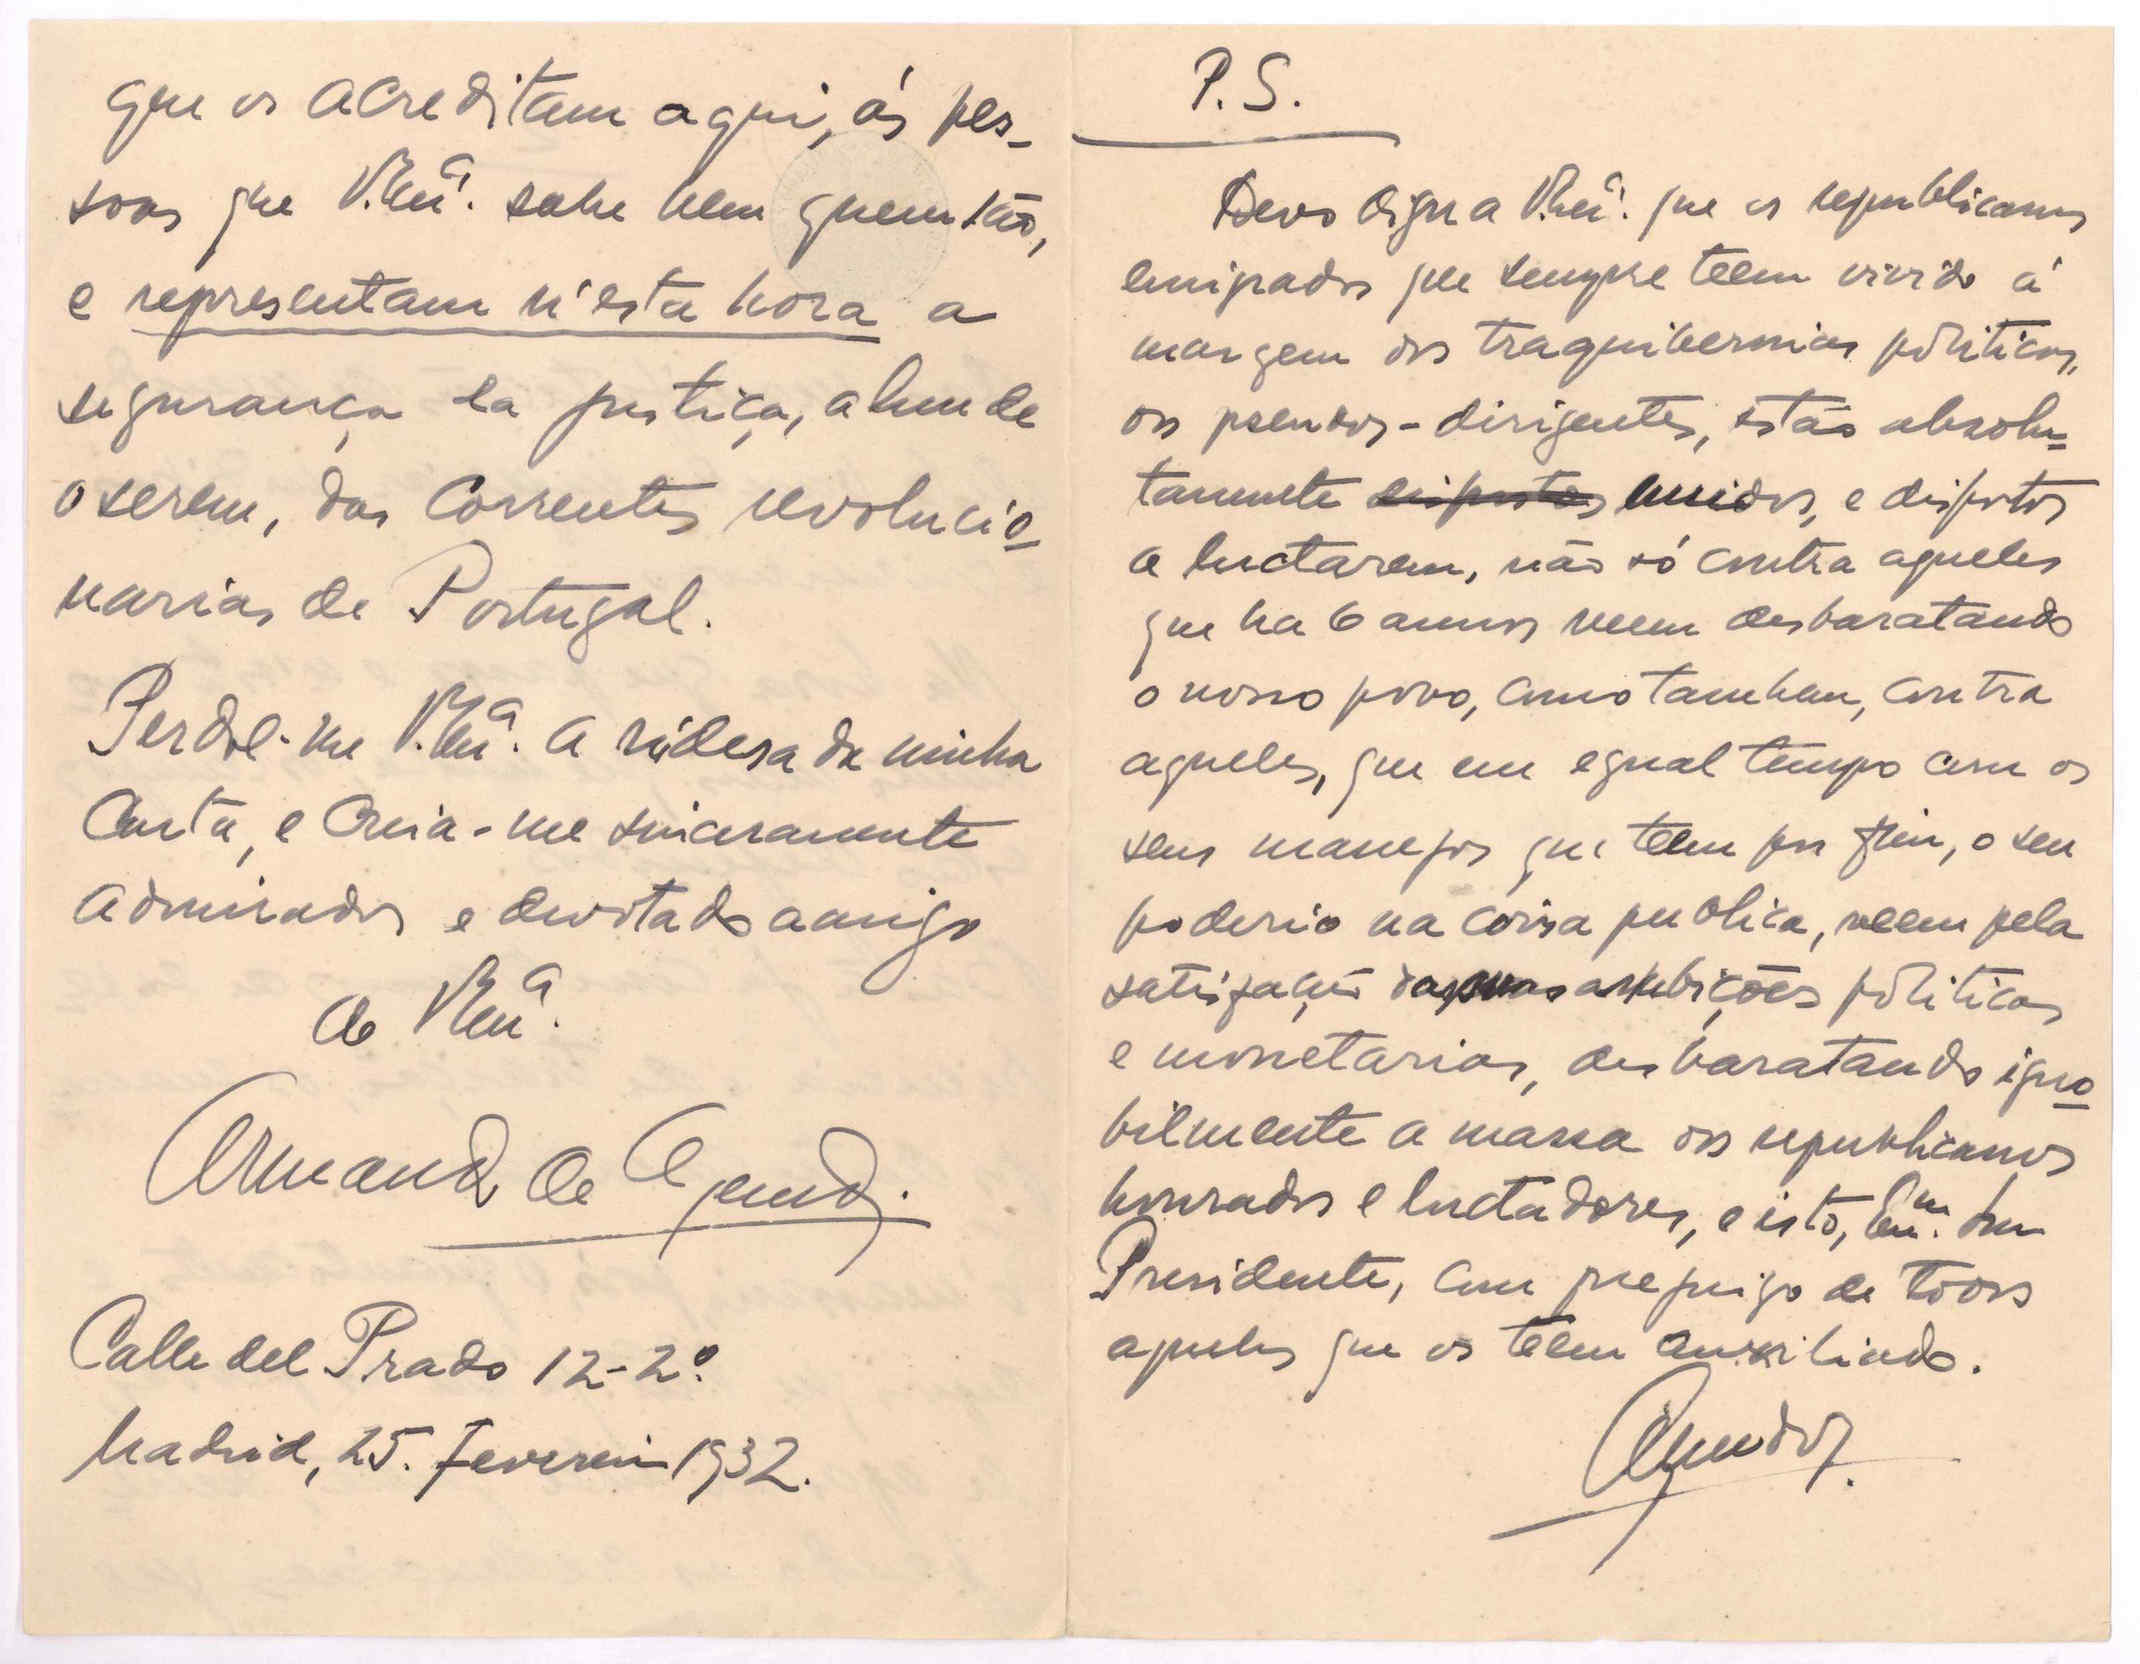 que os acreditam aqui, ás pes-
soas que V. Exª. sabe bem quem são,
e representam n'esta hora a
segurança e a justiça, alem de
o serem, das correntes revolucio-
narias de Portugal.
Perdôe-me V. Exª. a rúdesa da minha
Carta, e Creia-me sinceramente
admirador e devotado amigo
de V. Exª.
Armando de
Calle del Prado 12-2º
Madrid, 25. Fevereiro 1932.
P. S.
Devo diser a V. Exª. que os republicanos
emigrados que sempre teem vivido á
margem das traquibernias politicas,
dos pseudos-dirigentes, estão absolu=
tamente dispostos unidos, e dispostos
a luctarem, não só contra aqueles
que ha 6 annos veem desbaratando
o nosso povo, como tambem, contra
aqueles, que em egual tempo com os
seus manejos que teem por fim, o seu
poderio na coisa publica, veem pela
satisfação das suas ambições politicas
e monetarias, desbaratando igno-
bilmente a massa dos republicanos
honrados e luctadores, e isto, Exm. Snr
Presidente, com prejuizo de todos
aqueles que os teem auxiliado.